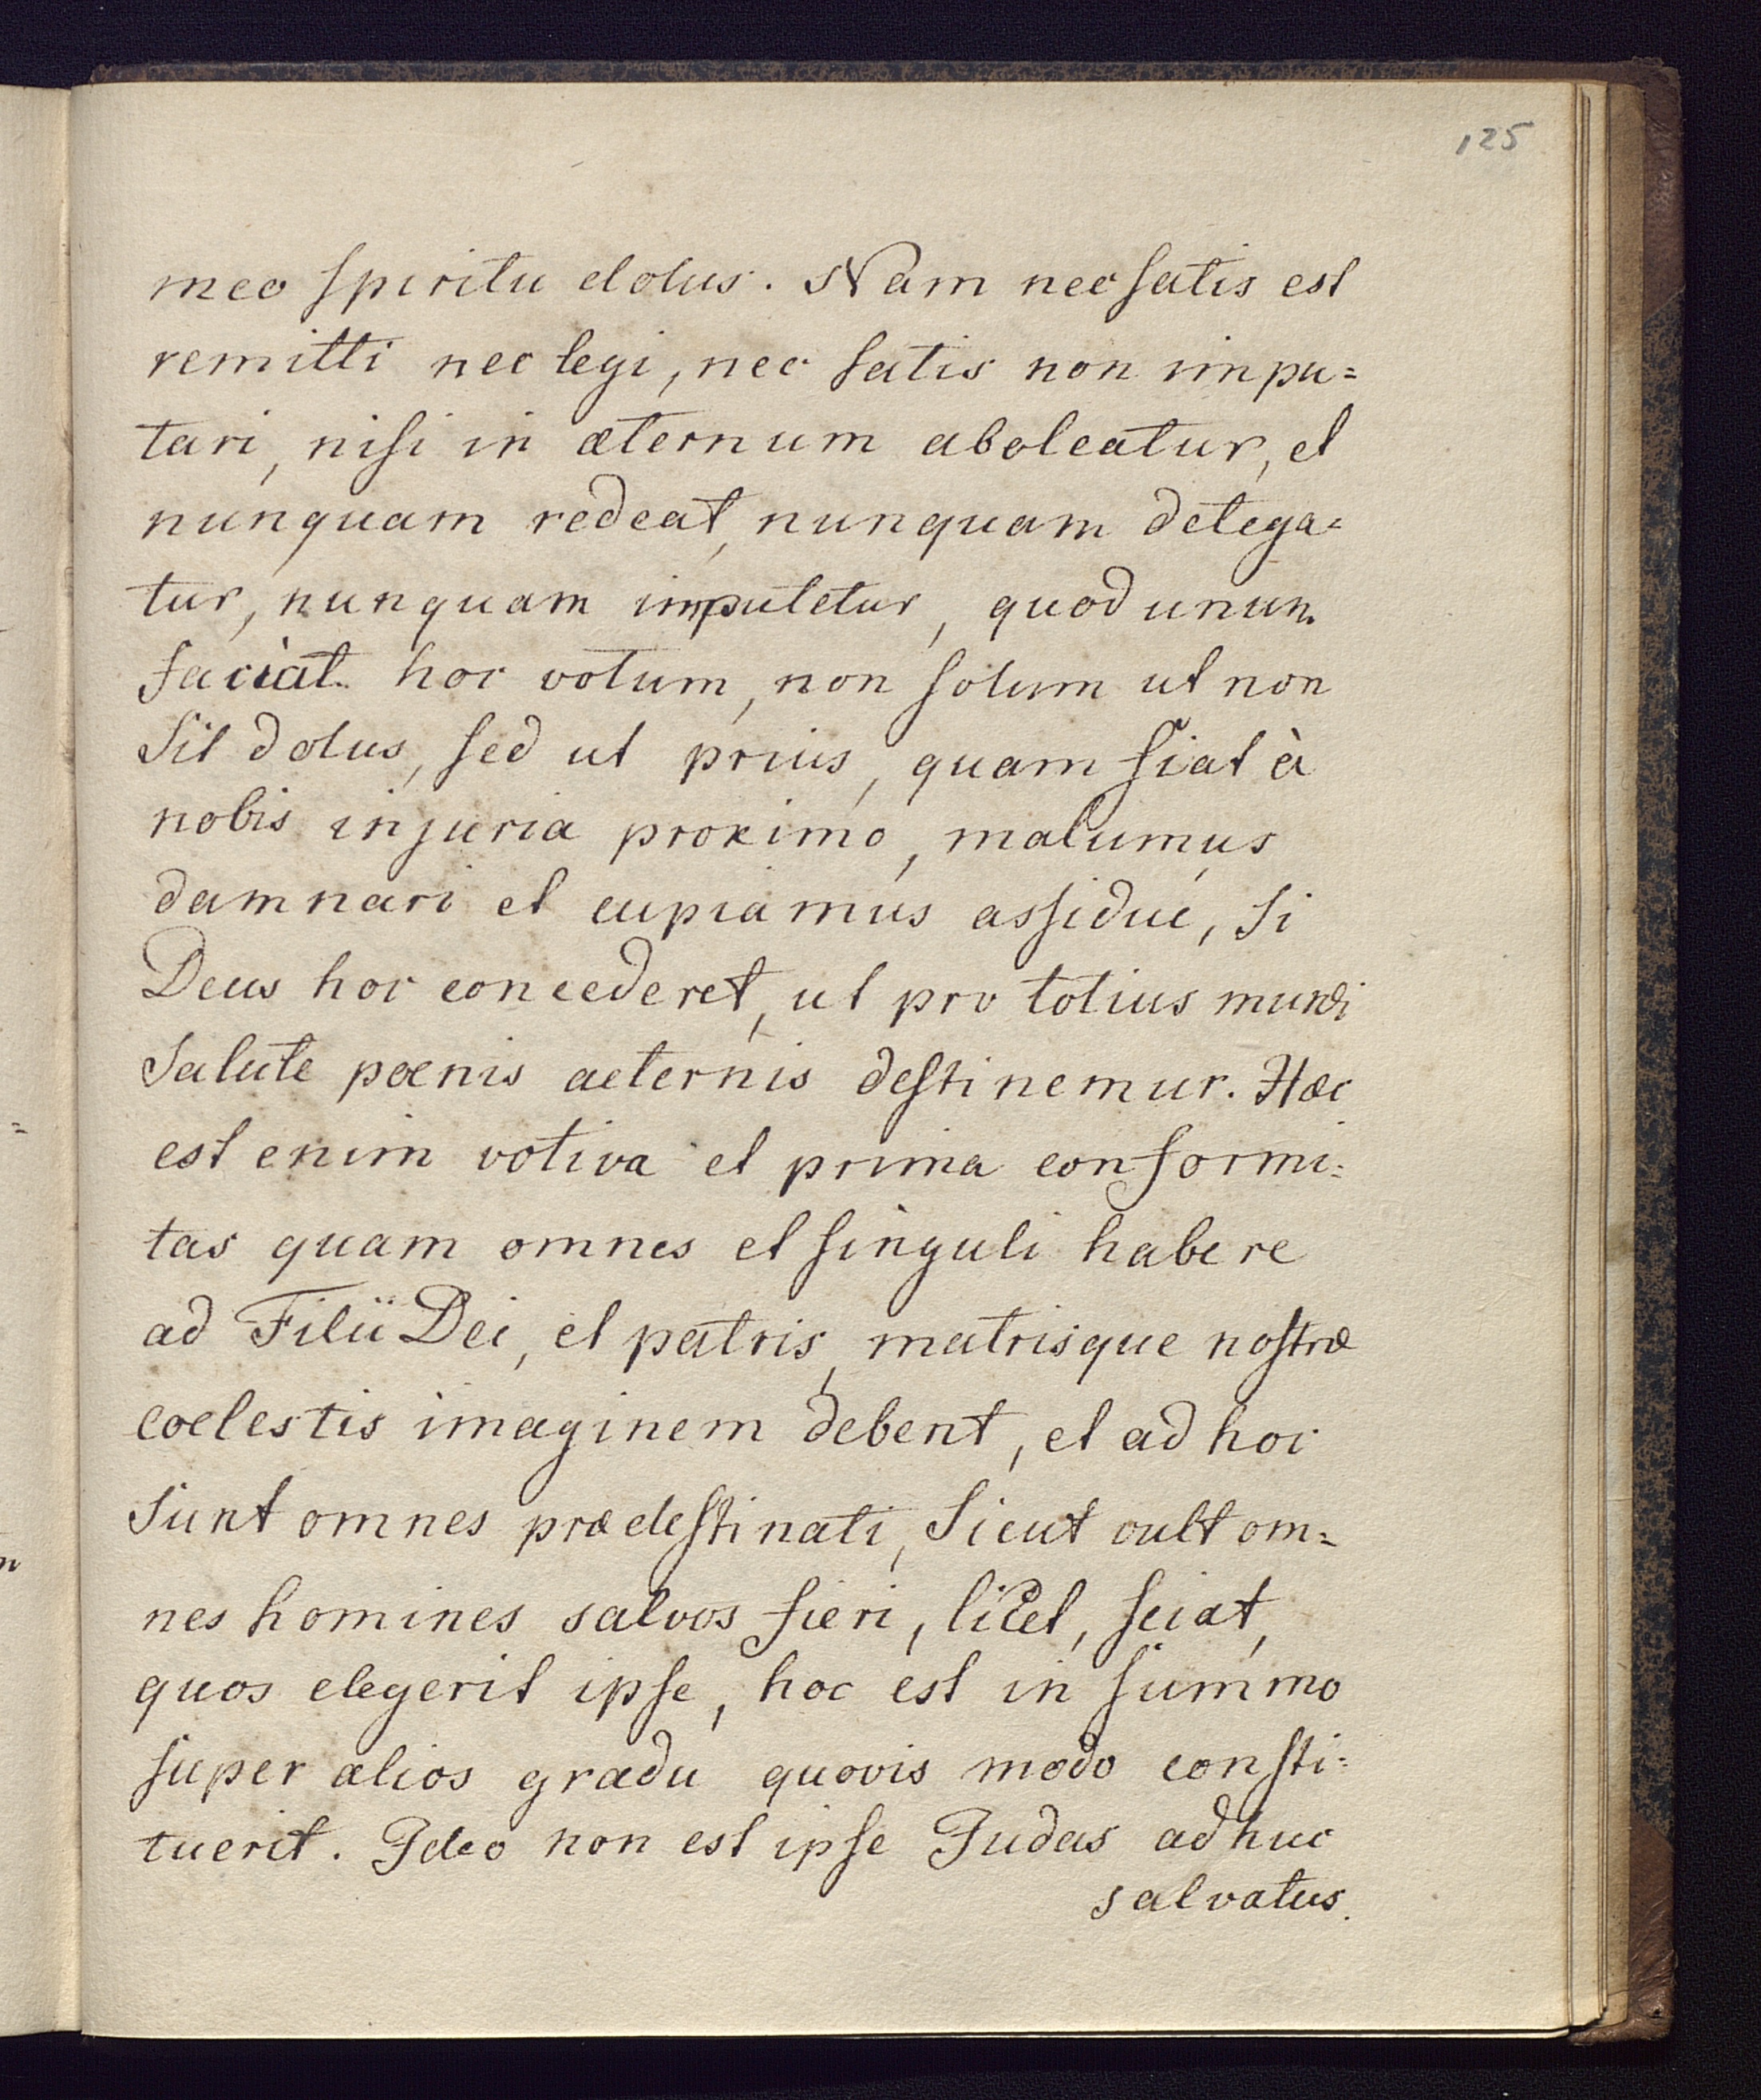 125
meo ſpiritu dolus. Nam nec ſatis est
remitti nec legi, nec ſatis non impu=
tari, niſi in æternum aboleatur, et
nunquam redeat, nunquam detega=
tur, nunquam imputetur, quod unum
faciat hoc votum, non ſolum ut non
Sit dolus, ſed ut prius, quam fiat à
nobis injuria proximo, malumus
damnari et cupiamus asſidue, Si
Deus hoc concederet, ut pro totius mundi
Salute pœnis aeternis deſtinemur. Hæc
est enim votiva et prima conformi=
tas quam omnes et ſinguli habere
ad Filii Dei, et patris, matrisque noſtræ
coelestis imaginem debent, et ad hoc
Sunt omnes prædeſtinati, Sicut vult om=
nes homines salvos fieri, licet, ſciat,
quos elegerit ipſe, hoc est in ſummo
ſuper alios gradu quovis modo conſti=
tuerit. Ideo non est ipſe Judas adhuc
salvatus.